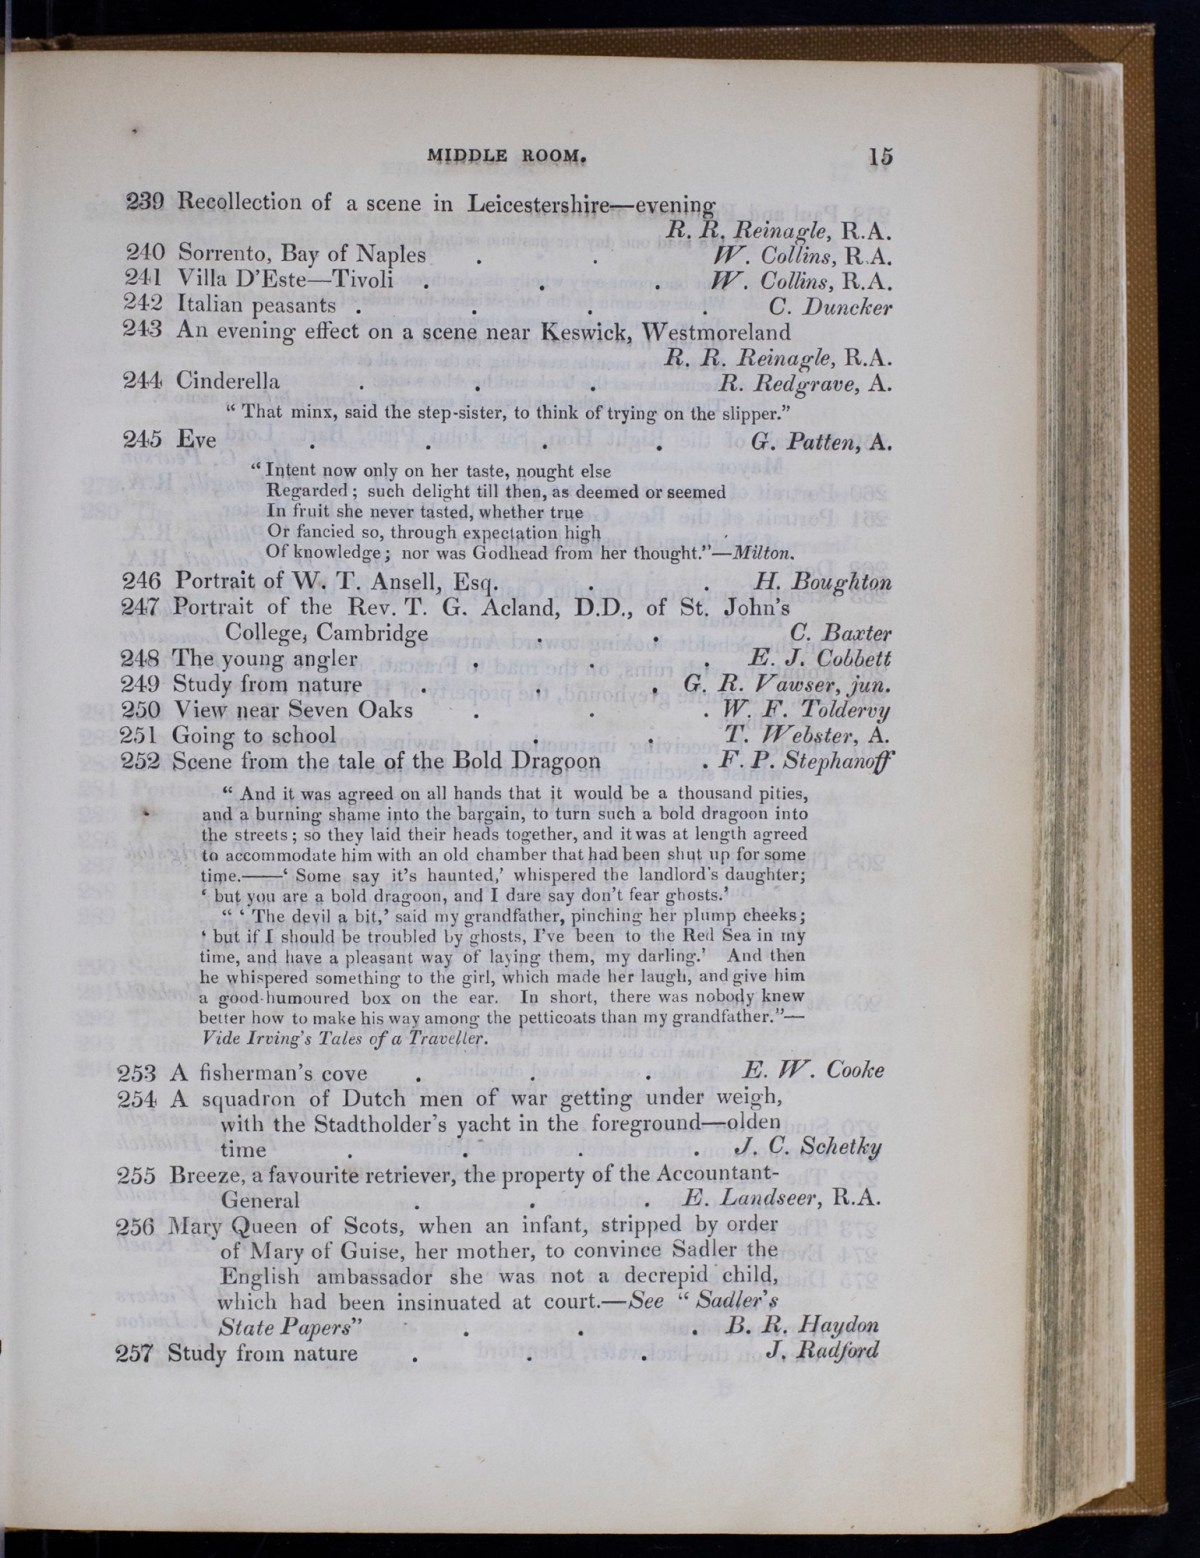 MIDDLE ROOM. 15
239 Recollection of a scene in Leicestershire—evening
R. R. Reinagle, R.A.
240 Sorrento, Bay of Naples . . W. Collins, R.A.
241 Villa D'Este—Tivoli . . . W. Collins, R.A.
242 Italian peasants . . . . C. Duncker
243 An evening effect on a scene near Keswick, Westmoreland
R. R. Reinagle, R.A.
244 Cinderella . . . R. Redgrave, A.
“ That minx, said the step-sister, to think of trying on the slipper.”
245 Eve . . . . G. Patten, A.
“ Intent now only on her taste, nought else
Regarded ; such delight till then, as deemed or seemed
In fruit she never tasted, whether true
Or fancied so, through expectation high
Of knowledge ; nor was Godhead from her thought.”—Milton.
246 Portrait of W. T. Ansell, Esq. . . H. Boughton
247 Portrait of the Rev. T. G. Acland, D.D., of St. John's
College, Cambridge . . C. Baxter
248 The young angler . . . E. J. Cobbett
249 Study from nature . . . G. R. Vawser, jun.
250 View near Seven Oaks . . . W. F. Toldervy
251 Going to school . . T. Webster, A.
252 Scene from the tale of the Bold Dragoon . F. P. Stephanoff
“ And it was agreed on all hands that it would be a thousand pities,
and a burning shame into the bargain, to turn such a bold dragoon into
the streets ; so they laid their heads together, and it was at length agreed
to accommodate him with an old chamber that had been shut up for some
time.——‘ Some say it's haunted,’ whispered the landlord's daughter;
‘ but you are a bold dragoon, and I dare say don't fear ghosts.’
“ ‘ The devil a bit,’ said my grandfather, pinching her plump cheeks;
‘ but if I should be troubled by ghosts, I've been to the Red Sea in my
time, and have a pleasant way of laying them, my darling.’ And then
he whispered something to the girl, which made her laugh, and give him
a good-humoured box on the ear. In short, there was nobody knew
better how to make his way among the petticoats than my grandfather.”—
Vide Irving's Tales of a Traveller.
253 A fisherman's cove . . . E. W. Cooke
254 A squadron of Dutch men of war getting under weigh,
with the Stadtholder's yacht in the foreground—olden
time . . . . J. C. Schetky
255 Breeze, a favourite retriever, the property of the Accountant-
General . . . E. Landseer, R.A.
256 Mary Queen of Scots, when an infant, stripped by order
of Mary of Guise, her mother, to convince Sadler the
English ambassador she was not a decrepid child,
which had been insinuated at court.—See “ Sadler's
State Papers” . . . B. R. Haydon
257 Study from nature . . . J. Radford